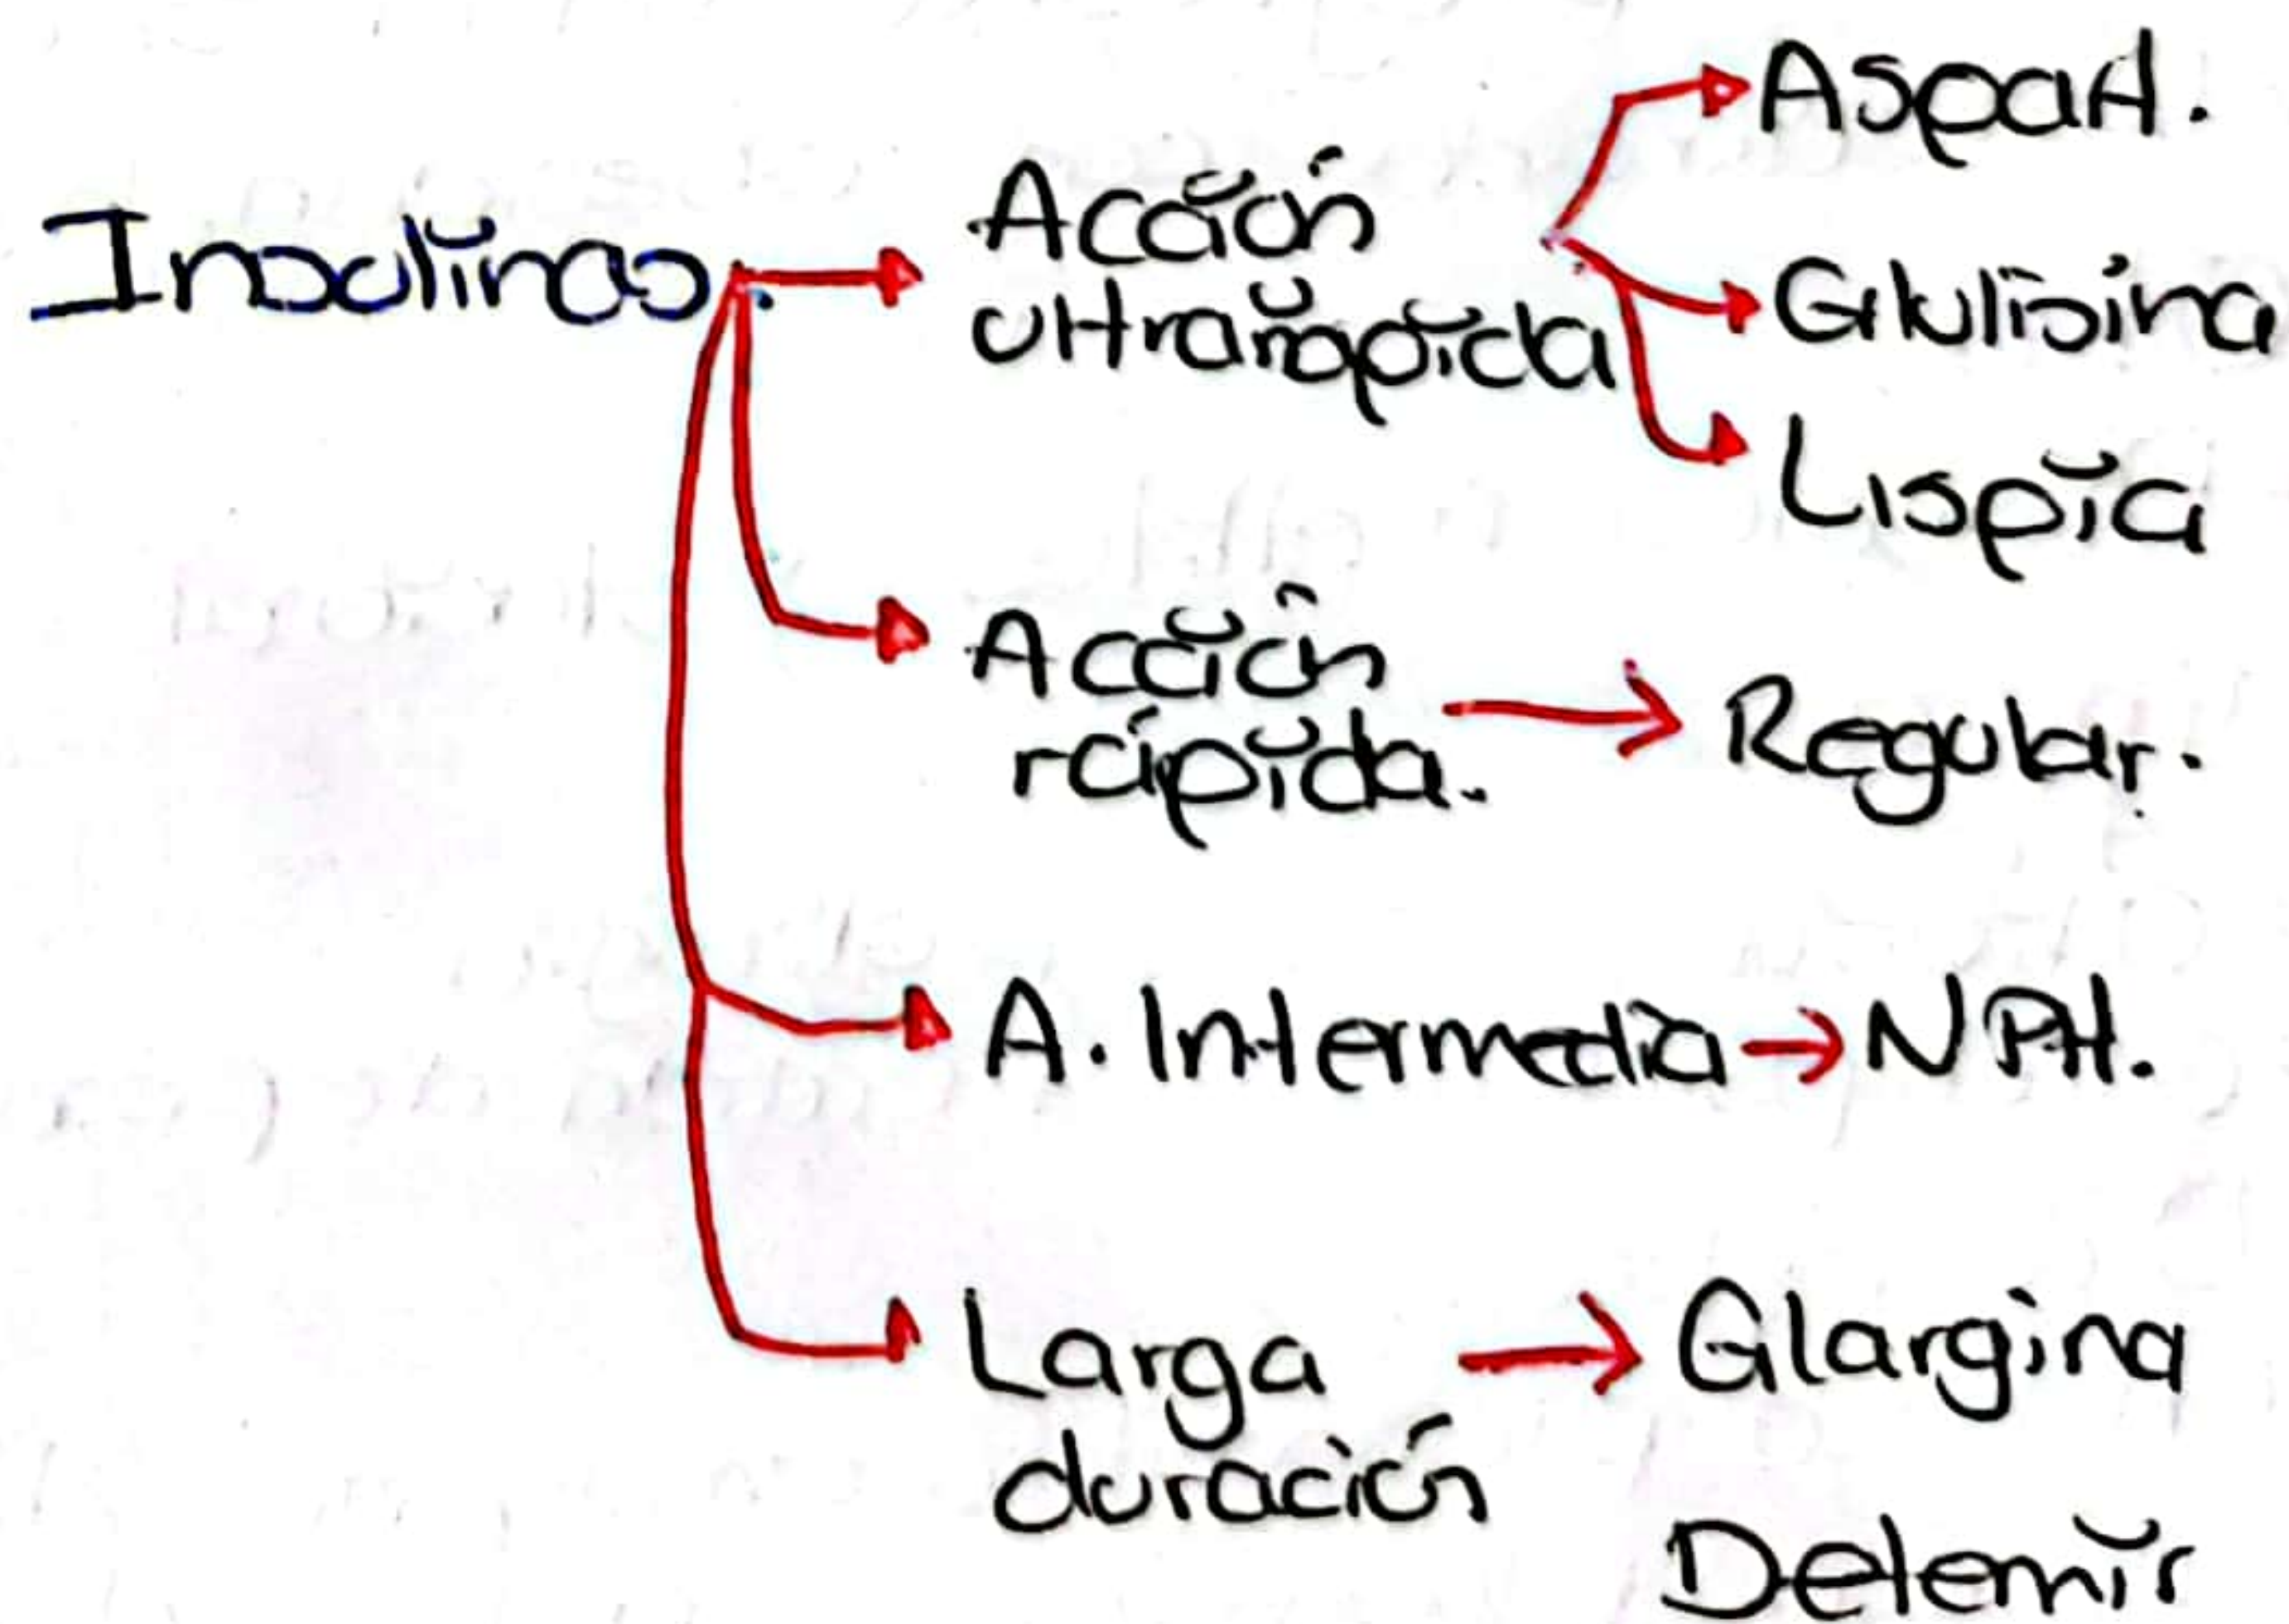 Insulinas.
Acción
ultrarrápida
Aspart.
Glulisina
Lispia
Acción
rápida.
Regular.
A. Intermedia
NPH.
Larga
duración
Glargina
Detemir